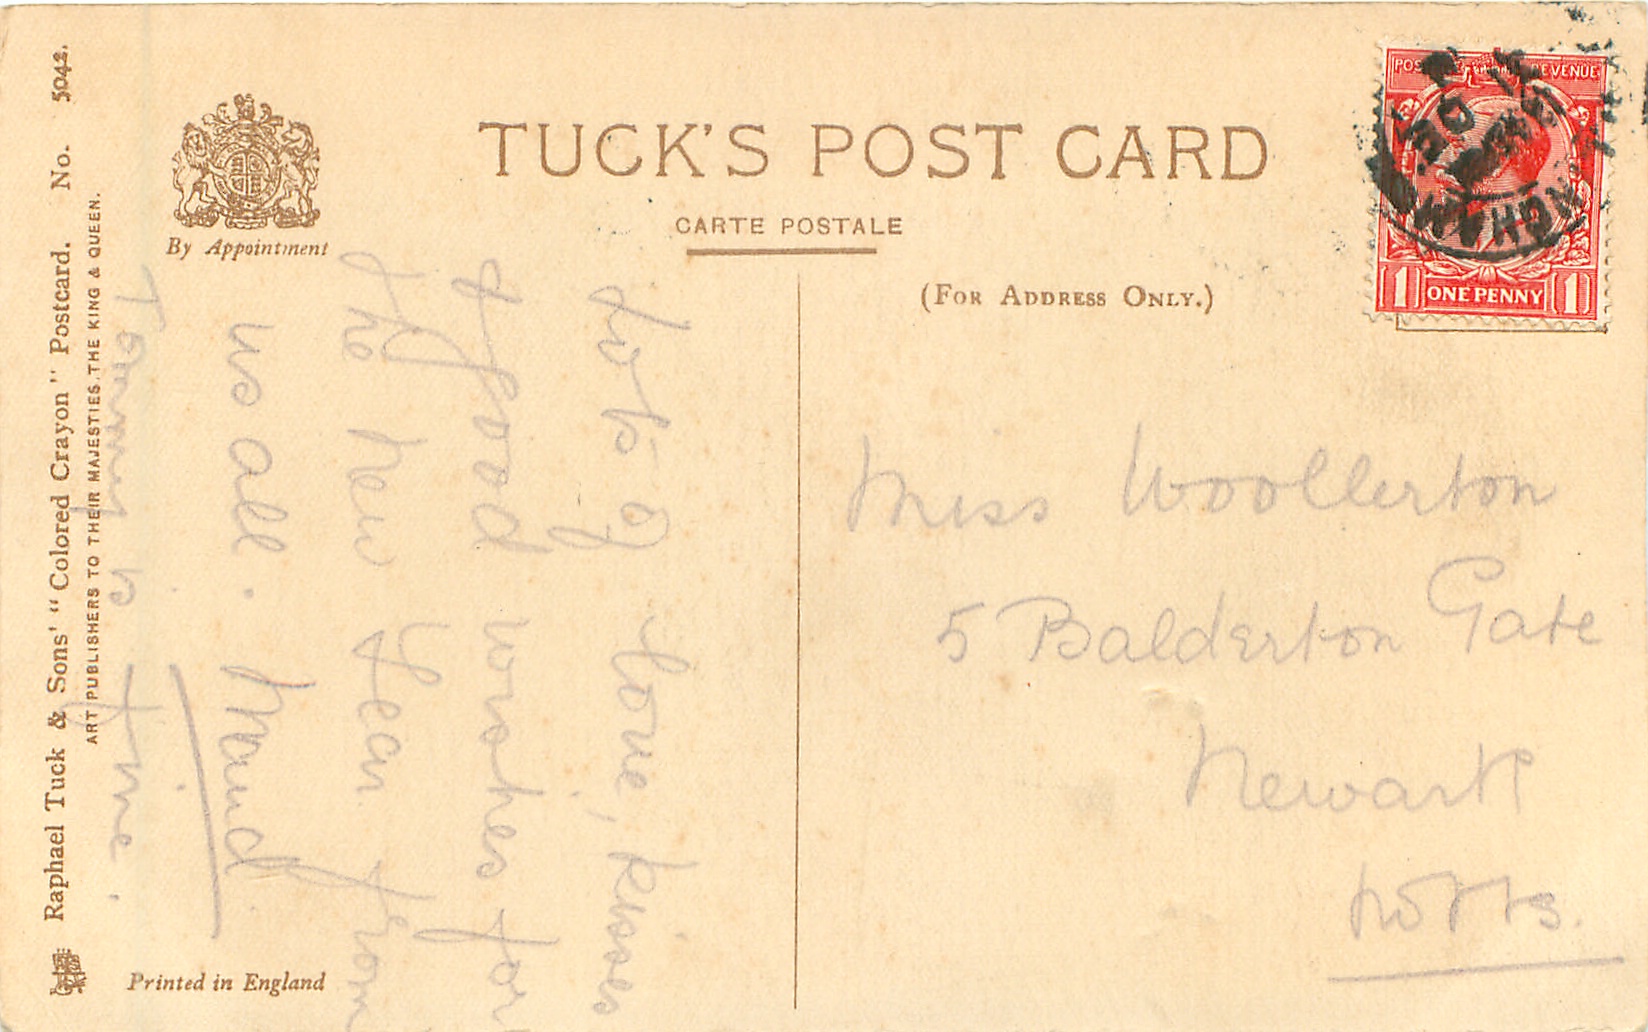 TUCK'S POST CARD
CARTE POSTALE
(FOR ADDRESS ONLY.)
By Appointment
Raphael Tuck & Sons' "Colored Crayon" Postcard. No. 5042.
ART PUBLISHERS TO THEIR MAJESTIES THE KING & QUEEN.
Printed in England
POSTAGE REVENUE
1 ONE PENNY 1
Lots of love, kisses
& good wishes for
the New Year from
us all. Maud.
Tommy is fine.
Miss Woollerton
5 Balderton Gate
Newark
Notts.